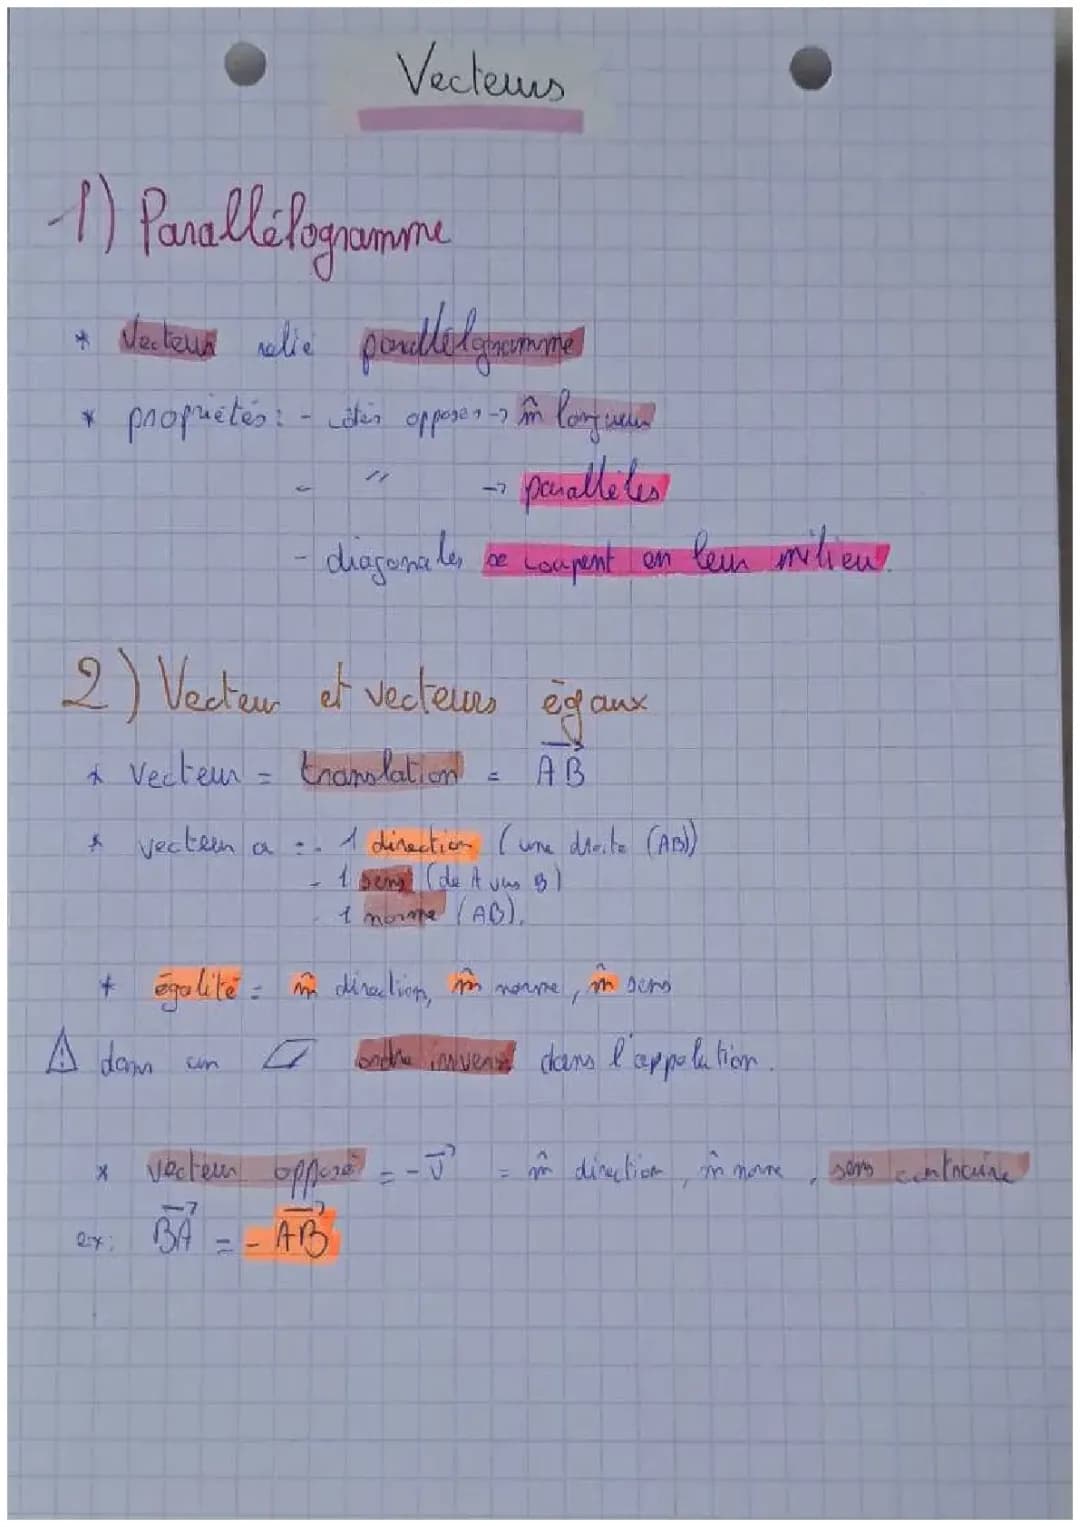 Vecteurs
1) Parallélogramme
* Vecteur relié parallélogramme
* propriétés : - côtés opposés -> m̂ longueur
- " -> parallèles
- diagonales se coupent en leur milieu.
2) Vecteur et vecteurs égaux
* Vecteur = translation = \overrightarrow{AB}
* vecteur a : - 1 direction (une droite (AB))
- 1 sens (de A vers B)
- 1 norme (AB).
* égalité = m̂ direction, m̂ norme, m̂ sens
⚠ dans un ▱ ordre inversé dans l'appelation.
* vecteur opposé = -\vec{v} = m̂ direction, m̂ norme, sens contraire
ex: \overrightarrow{BA} = - \overrightarrow{AB}